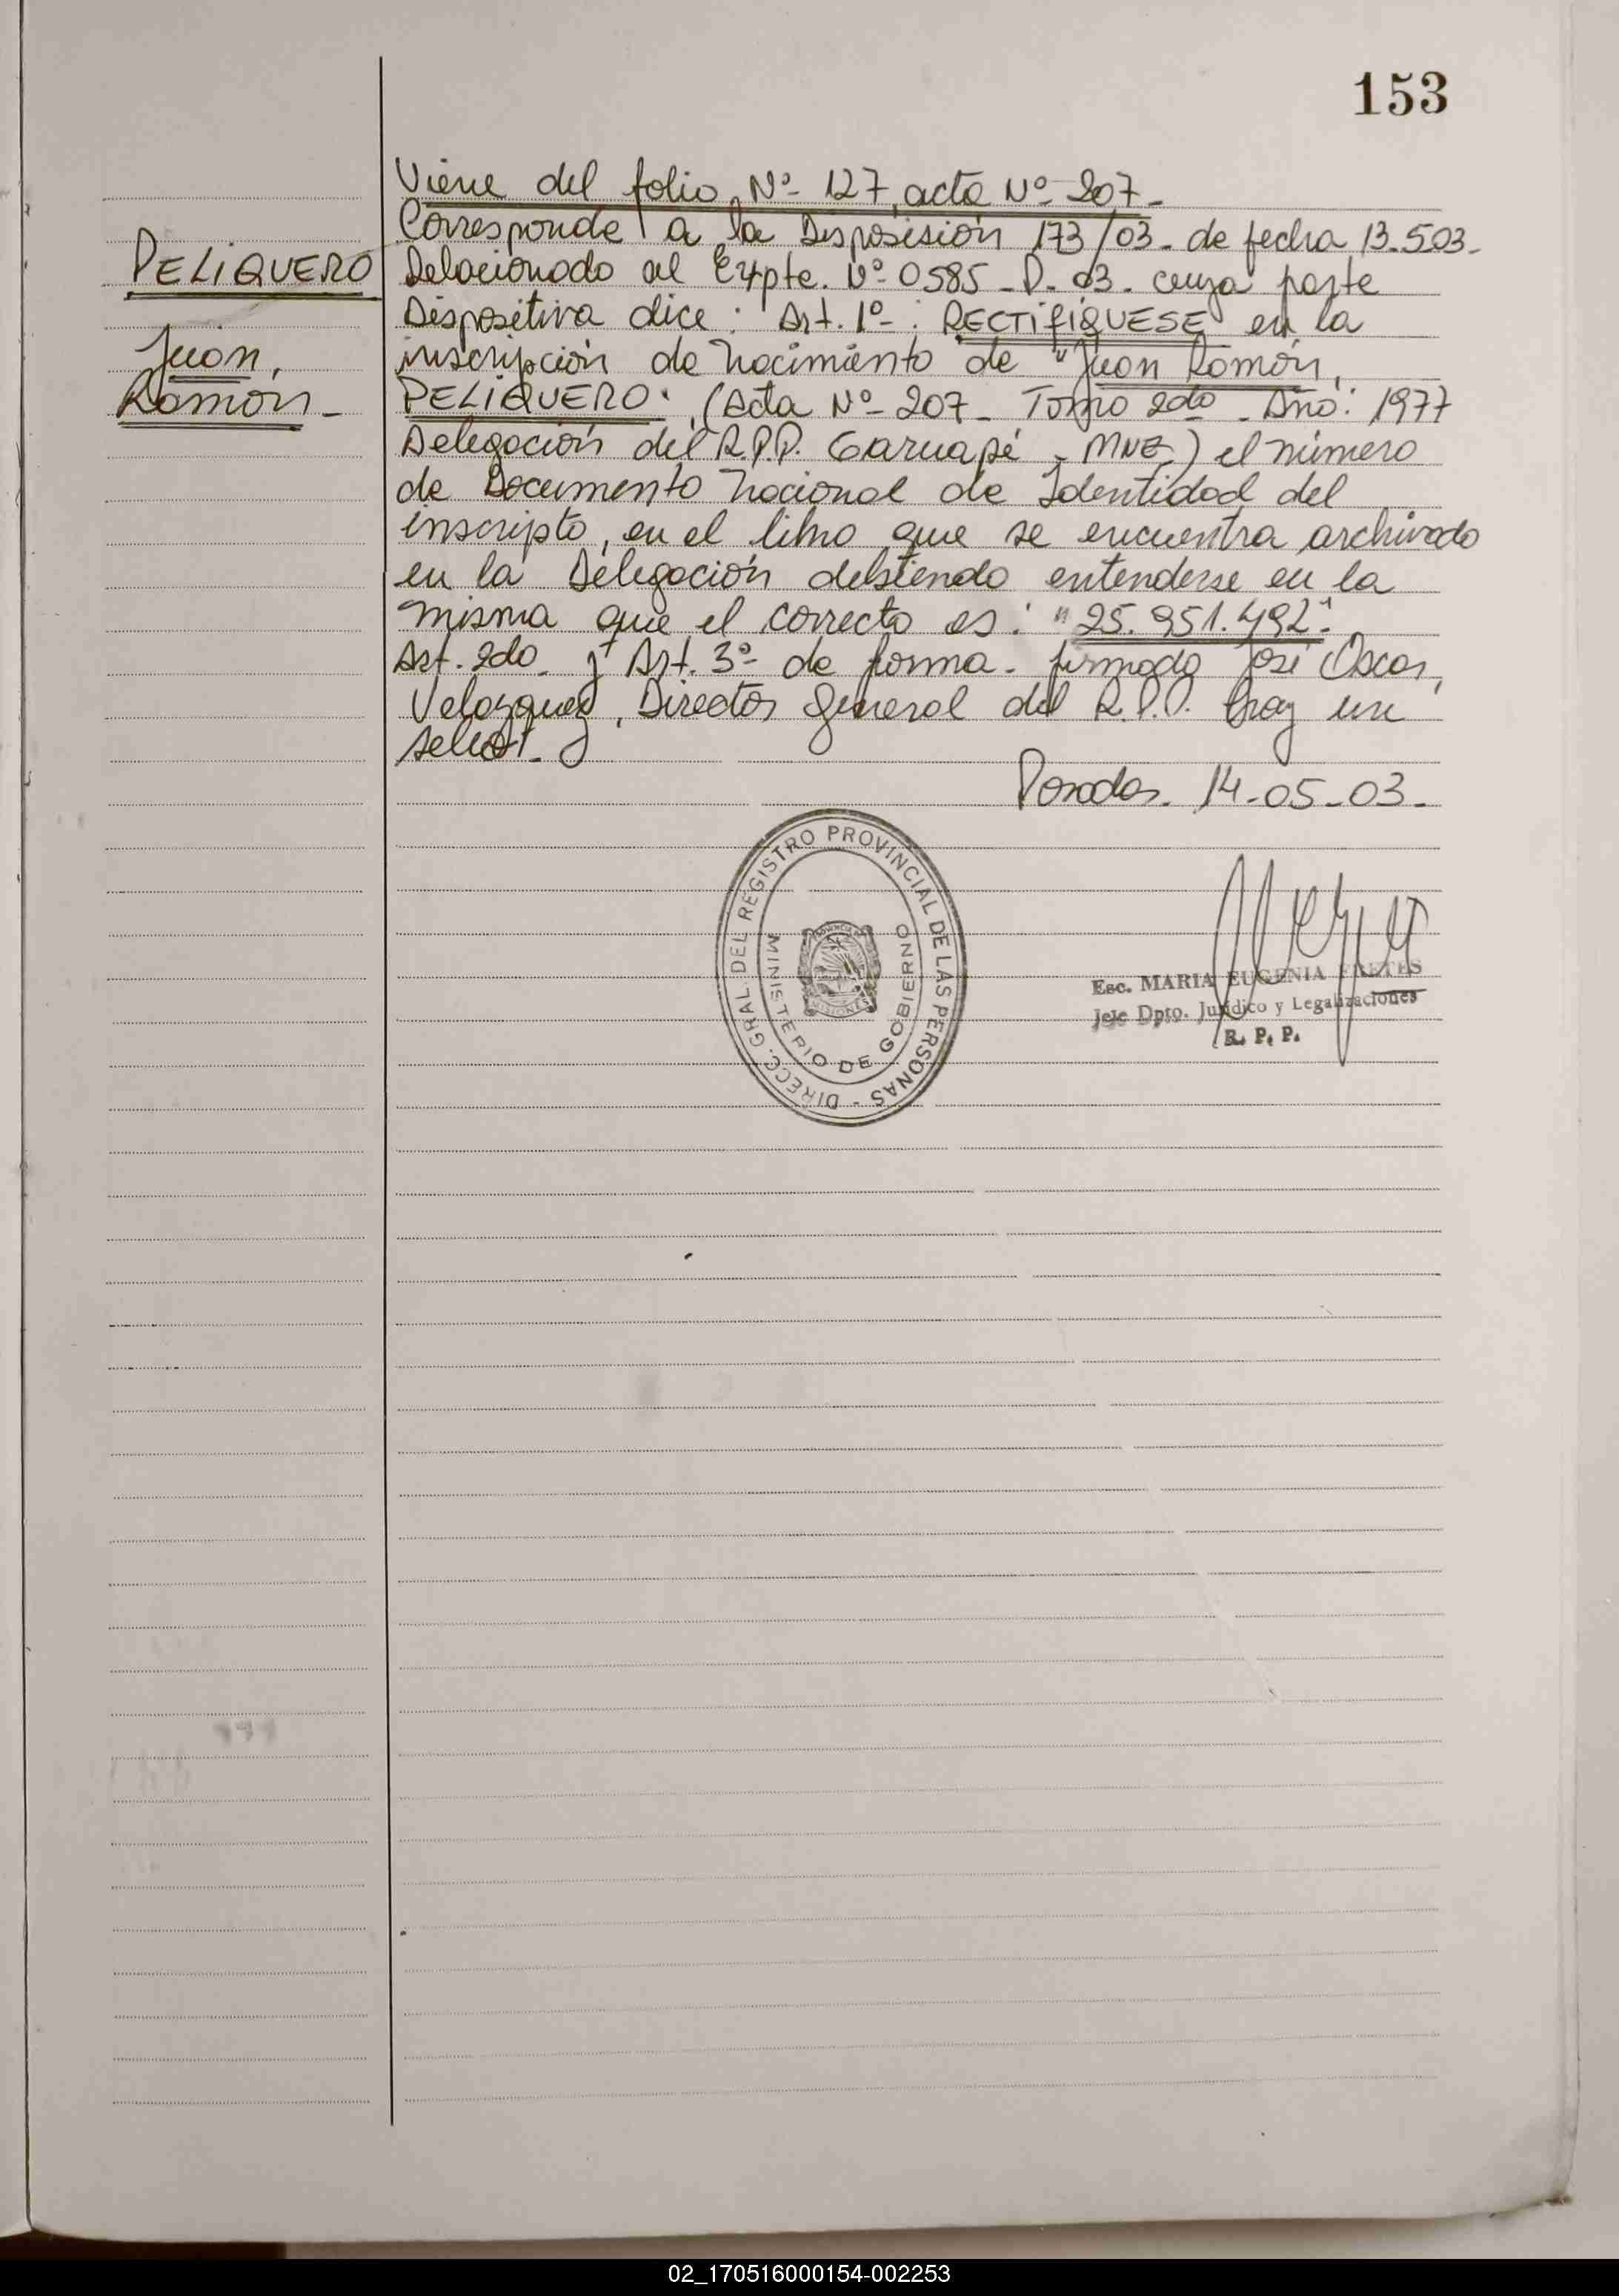 153
Viene del folio Nº 127, acta Nº 207-
Corresponde a la Disposisión 173/03- de fecha 13.5.03-
PELIQUERO
Relacionado al Expte. Nº 0585-P-03- cuya parte
Dispositiva dice: Art. 1º-: RECTIFIQUESE en la
Juan,
inscripción de nacimiento de "Juan Ramón,
Ramón-
PELIQUERO" (Acta Nº- 207- Tomo 2do- Año: 1977
Delegación del R.P.P. Garuapé - MNES) el número
de Documento Nacional de Identidad del
inscripto, en el libro que se encuentra archivado
en la Delegación debiendo entenderse en la
misma que el correcto es: "25.951.492".
Art. 2do- y Art. 3º- de forma- firmado José Oscar,
Velazquez, Director General del R.P.P. hay un
sello-
Posadas- 14-05-03-
DIRECC. GRAL. DEL REGISTRO PROVINCIAL DE LAS PERSONAS -
MINISTERIO DE GOBIERNO
MISIONES
Esc. MARIA EUGENIA FRETES
Jefe Dpto. Jurídico y Legalizaciones
R. P. P.
02_170516000154-002253